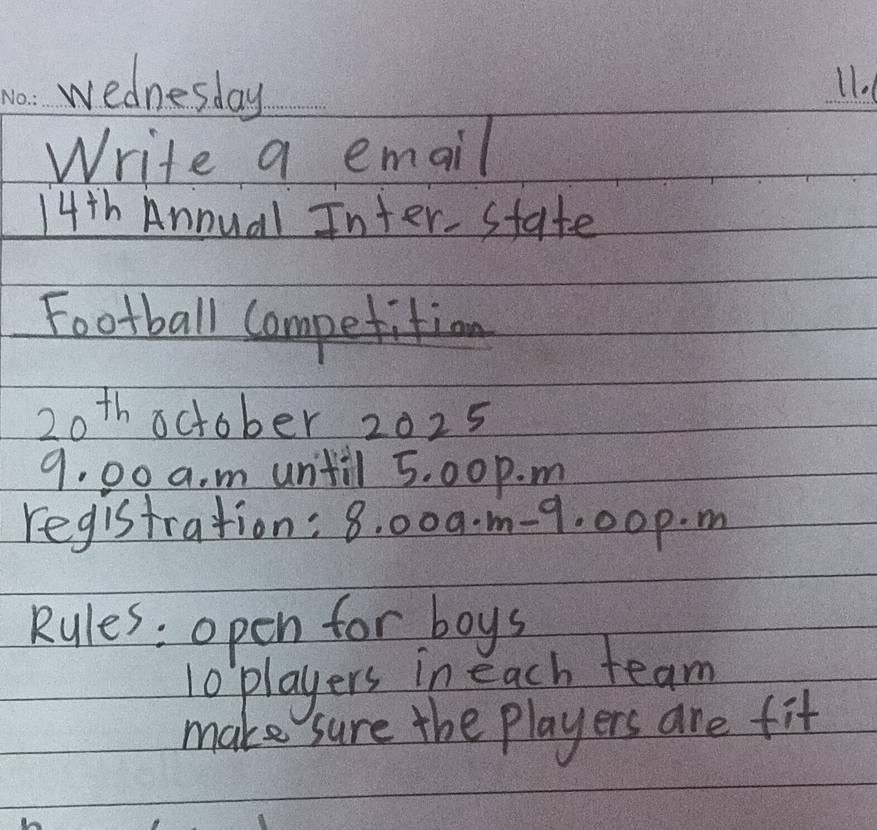 No.: Wednesday
Write a email
14th Annual Inter-state
Football Competition
20th october 2025
9.00 a.m until 5.00p.m
registration: 8.00a.m-9.00p.m
Rules: open for boys
10 players in each team
make sure the players are fit